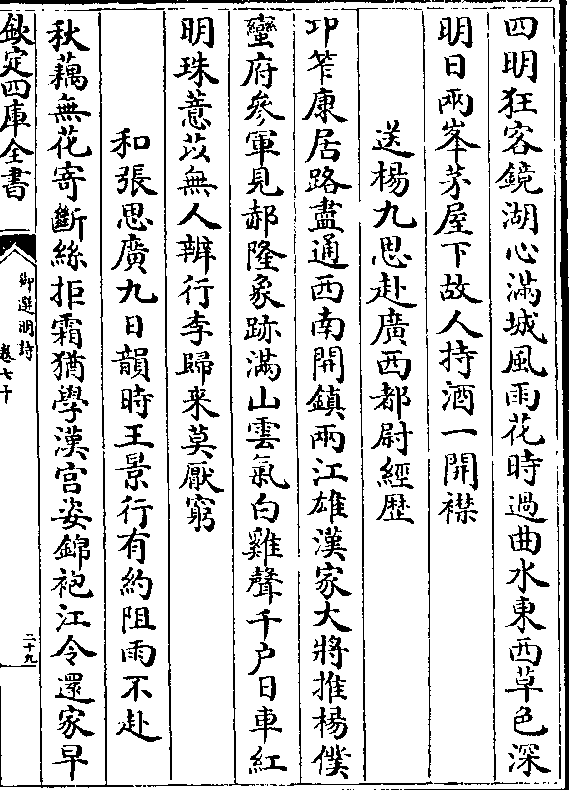 四明狂客鏡湖心滿城風雨花時過曲水東西草色深
明日兩峯茅屋下故人持酒一開襟
送楊九思赴廣西都尉經歴
卭笮康居路盡通西南開鎮兩江雄漢家大將推楊僕
蠻府參軍見郝隆象跡滿山雲氣白雞聲千戸日車紅
明珠薏苡無人辨行李歸来莫厭窮
和張思廣九日韻時王景行有約阻雨不赴
秋藕無花寄斷絲拒霜猶學漢宫姿錦袍江令還家早
欽定四庫全書
御選明詩
卷七十
二十九